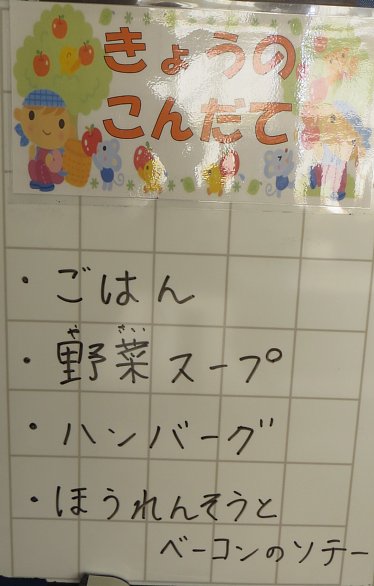 きょうの
こんだて
・ごはん
・野菜スープ
・ハンバーグ
・ほうれんそうと
ベーコンのソテー